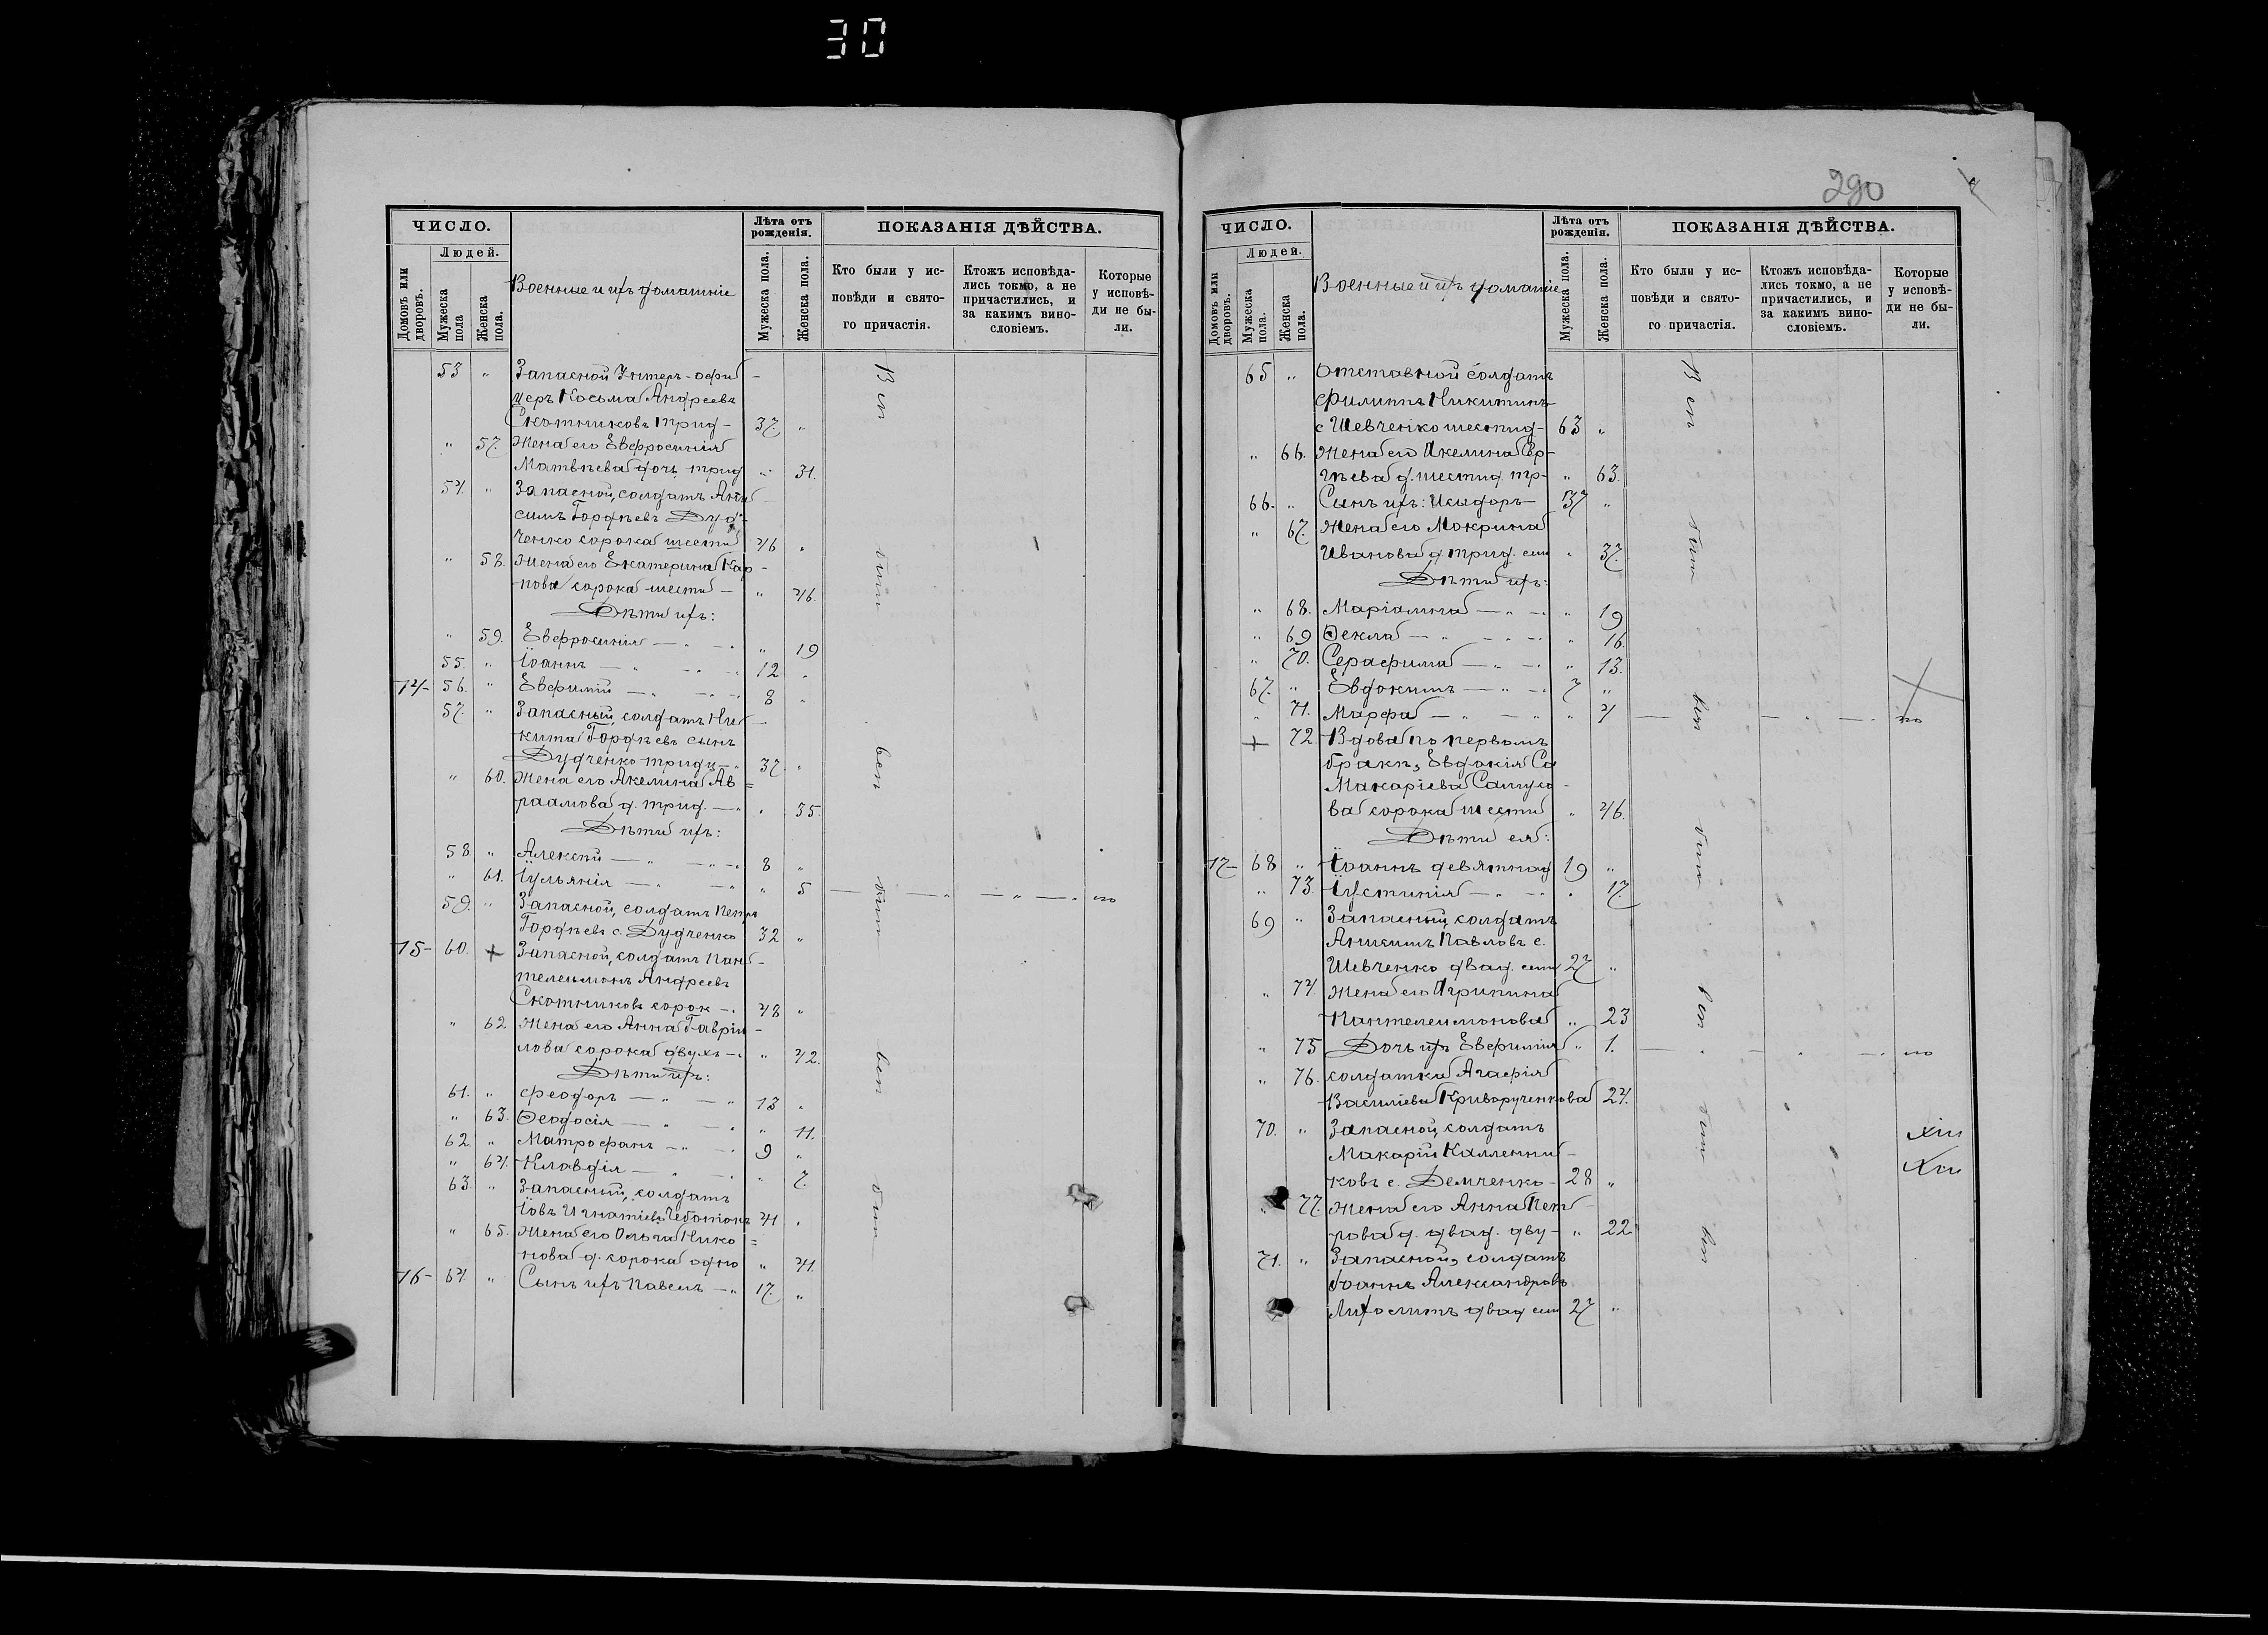 30
ЧИСЛО.
Людей.
Домовъ или дворовъ.
Мужеска пола
Женска пола.
Военные и ихъ домашніе
Лѣта отъ рожденія.
Мужеска пола.
Женска пола.
ПОКАЗАНІЯ ДѢЙСТВА.
Кто были у ис-
повѣди и свято-
го причастія.
Ктожъ исповѣда-
лись токмо, а не
причастились, и
за какимъ вино-
словіемъ.
Которые
у исповѣ-
ди не бы-
ли.
53 " Запасной Унтеръ-офи -
церъ Косьма Андреевъ
Скотниковъ трид- 37. "
" 57. Жена его Евфросинія
Матвѣева дочь трид " 31.
54. " Запасной, солдатъ Ани -
симъ Гордѣевъ Дуд-
ченко сорока шести 46 "
" 58. Жена его Екатерина Кар-
пова сорока шести - " 46.
Дѣти ихъ:
" 59. Евфросинія — " — " " 19
55. " Іоаннъ — " — " 12 "
14- 56. " Евфимій — " — " 8 "
57. " Запасный, солдатъ Ни -
кита Гордѣевъ сынъ
Дудченко тридц- " 37 "
" 60. Жена его Акелина Ав =
раамова д. трид. — " " 35.
Дѣти ихъ:
58 " Алексѣй — " — " 8 "
" 61. Іульянія — " — " " 5 — " — " — " по
59. " Запасной, солдатъ Петръ
Гордѣевъ с. Дудченко 32 "
15- 60. + Запасной, солдатъ Пан -
телеимонъ Андреевъ
Скотниковъ сорок - " 48 "
" 62 Жена его Анна Гаврiи -
лова сорока двухъ - " " 42.
Дѣти ихъ:
61. " Феодоръ — " — " 13 "
" 63. Ѳеодосія — " — " " 11.
62 " Матрофанъ — " — " 9 "
" 64. Клавдія — " — " " 7.
63. " Запасный, солдатъ
Іовъ Игнатіевъ Чеботокъ 41 "
" 65. Жена его Ольга Нико =
нова д. сорока одно " 41.
16- 64. " Сынъ ихъ Павелъ — " 17. "
Всѣ
были
всѣ
были
всѣ
были
290
ЧИСЛО.
Людей.
Домовъ или дворовъ.
Мужеска пола.
Женска пола.
Военные и ихъ домашніе
Лѣта отъ рожденія.
Мужеска пола.
Женска пола.
ПОКАЗАНІЯ ДѢЙСТВА.
Кто были у ис-
повѣди и свято-
го причастія.
Ктожъ исповѣда-
лись токмо, а не
причастились, и
за какимъ вино-
словіемъ.
Которые
у исповѣ-
ди не бы-
ли.
65 " Отставной солдатъ
Филиппъ Никитинъ
с Шевченко шестид- 63 "
" 66. Жена его Акелина Сер-
гѣева д. шестид тр- " 63.
66. " Сынъ ихъ: Исидоръ 37 "
" 67. Жена его Мокрина
Иванова д трид. семи " 37.
Дѣти ихъ:
" 68. Маріамна — " — " " 19
" 69 Ѳекла — " — " " 16.
" 70. Серафима — " — " " 13.
67. " Евдокимъ — " — " 7 "
" 71. Марфа — " — " " 4 — — " — по
+ 72 Вдова по первомъ
бракѣ, Евдокія
Макаріева
ва сорока шести " 46.
Дѣти ея:
17- 68 " Іоаннъ девятнад 19 "
" 73. Іустинія — " — " " 17.
69 " Запасный, солдатъ
Анисимъ Павловъ с.
Шевченко двад. семи 27 "
" 74. Жена его Агрипина
Пантелеимонова " 23
" 75 Дочь ихъ Евфимія " 1. — " — " — по
" 76. солдатка Агафія
Василіева Криворученкова 24.
70. " Запасной, солдатъ
Макарій Каллинни -
ковъ с. Демченко - 28 "
" 77. Жена его Анна Пет -
рова д. двад. дву- " 22
71. " Запасной, солдатъ
Іоаннъ Александровъ
двад семи 27 "
Всѣ
были
всѣ
были
всѣ
были
всѣ